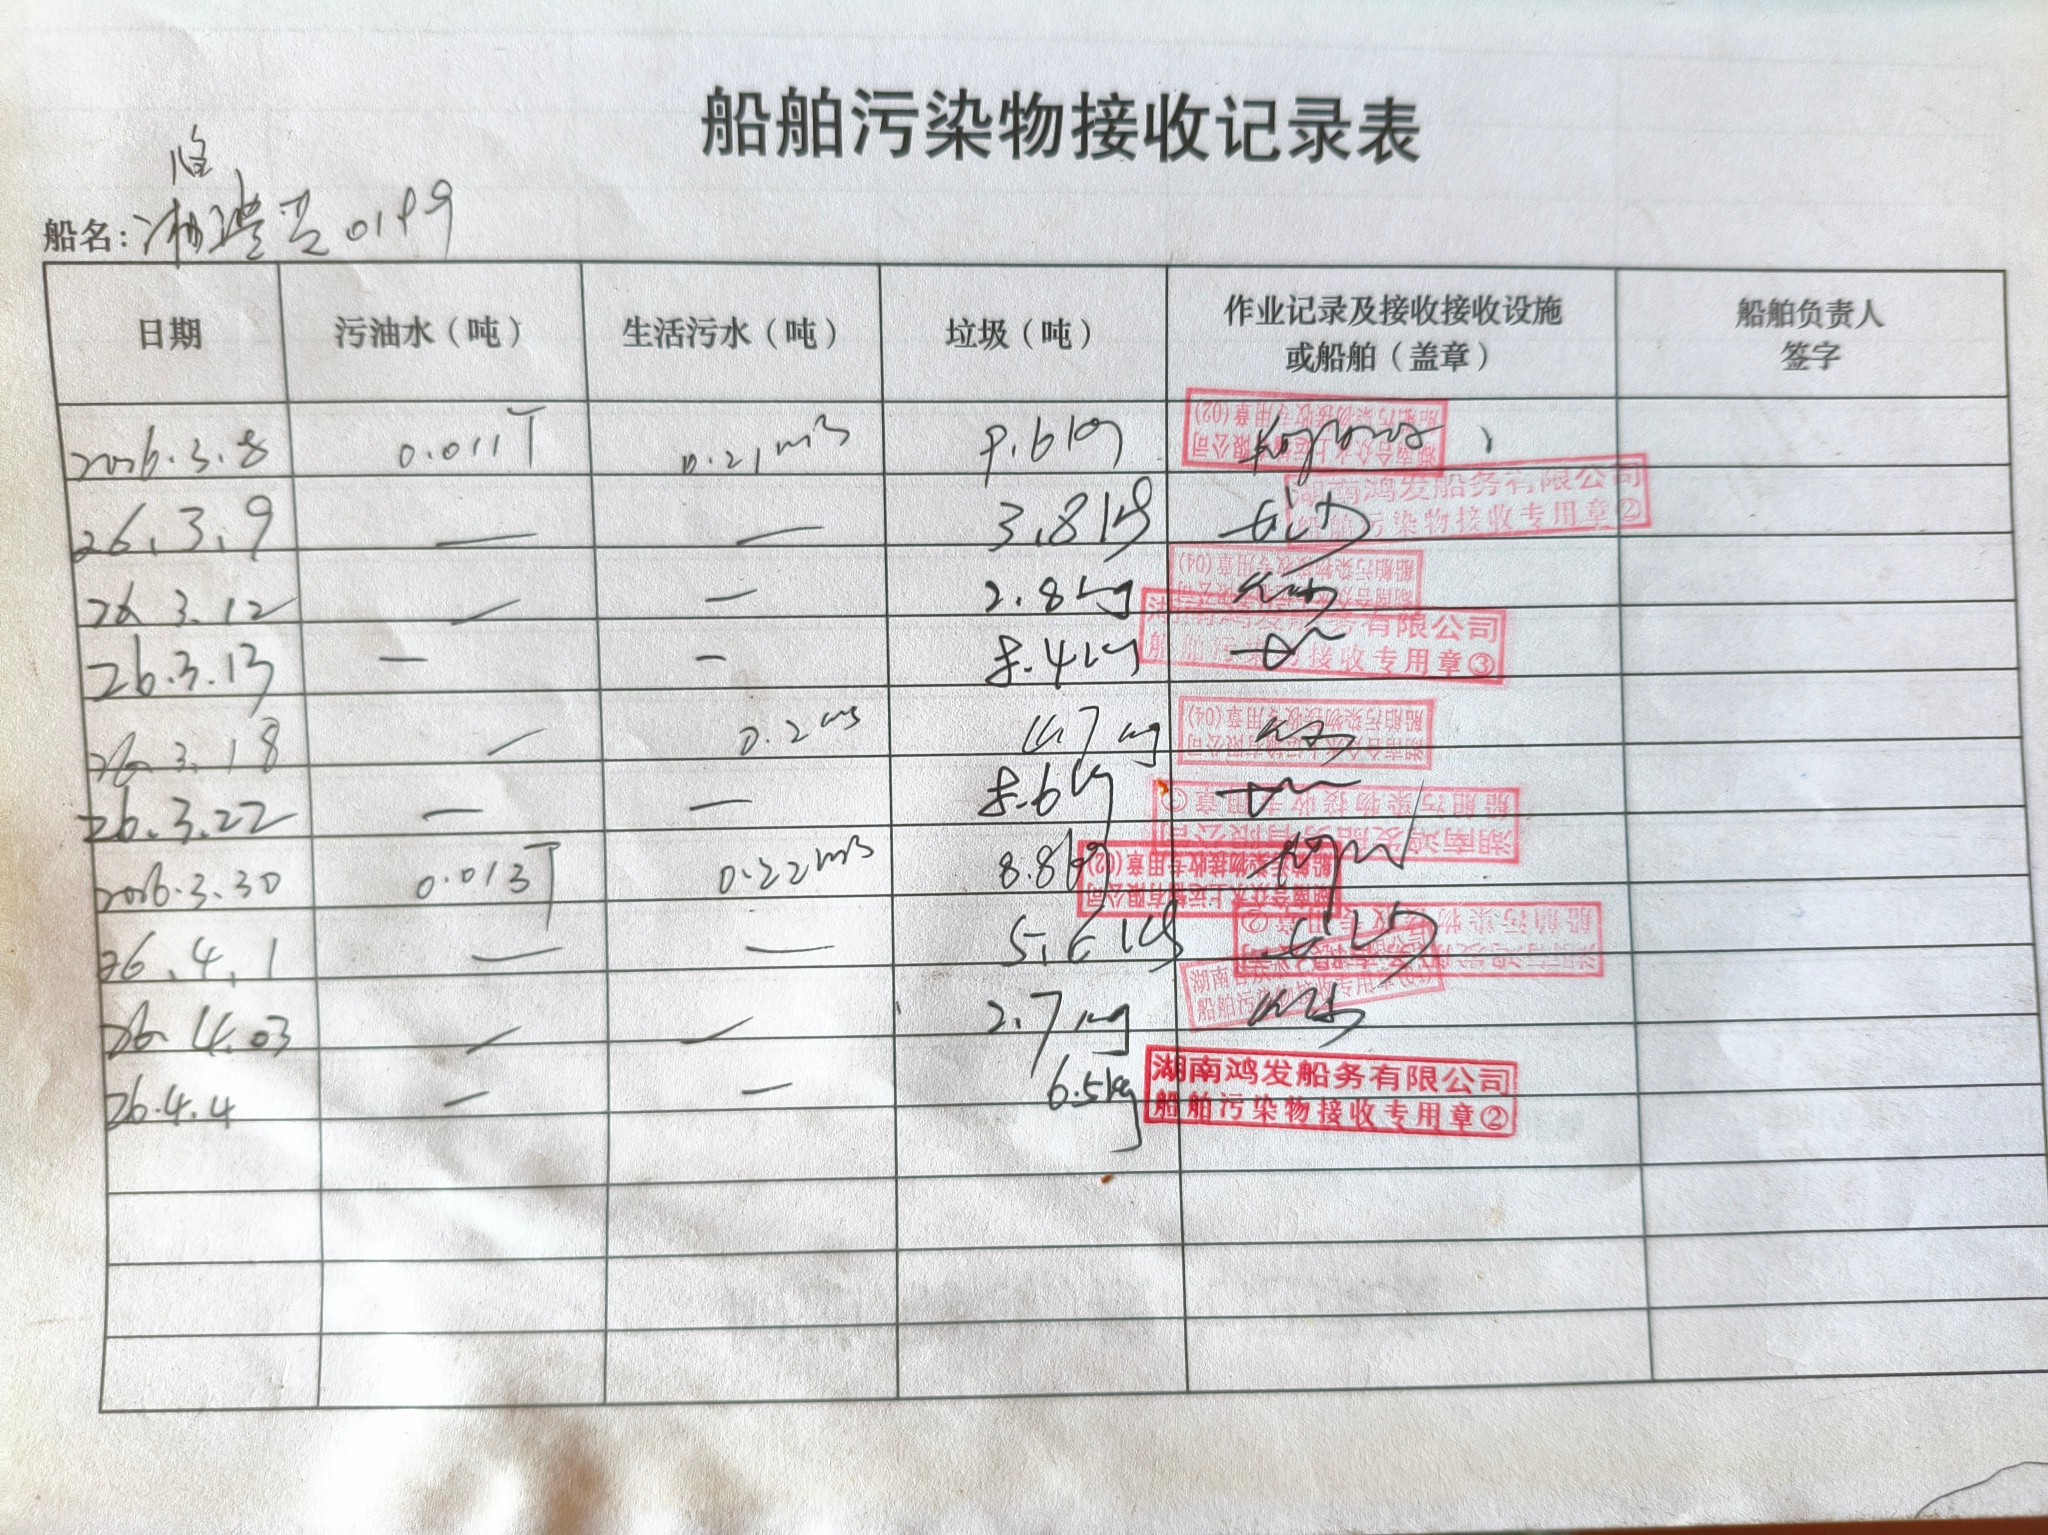 船舶污染物接收记录表
临
船名：湘 0199
日期 污油水（吨） 生活污水（吨） 垃圾（吨） 作业记录及接收接收设施或船舶（盖章） 船舶负责人签字
2026.3.8 0.011T 0.21m3 9.6kg 船舶污染物接收专用章(02) 湖南合众水上运输有限公司
26.3.9 — — 3.8kg 湖南鸿发船务有限公司 船舶污染物接收专用章②
26.3.12 — — 2.8kg 船舶污染物接收专用章(04)
26.3.13 — — 8.4kg 湖南鸿发船务有限公司 船舶污染物接收专用章③
26.3.18 — 0.2m3 船舶污染物接收专用章(04) 湖南合众水上运输有限公司
26.3.22 — — 8.6kg 湖南鸿发船务有限公司 船舶污染物接收专用章
2026.3.30 0.013T 0.22m3 8.8kg 船舶污染物接收专用章(02) 湖南合众水上运输有限公司
26.4.1 — — 5.6kg 船舶污染物接收专用章②
26.4.03 — — 2.7kg 湖南 船舶污染物接收专用章
26.4.4 — — 6.5kg 湖南鸿发船务有限公司 船舶污染物接收专用章②